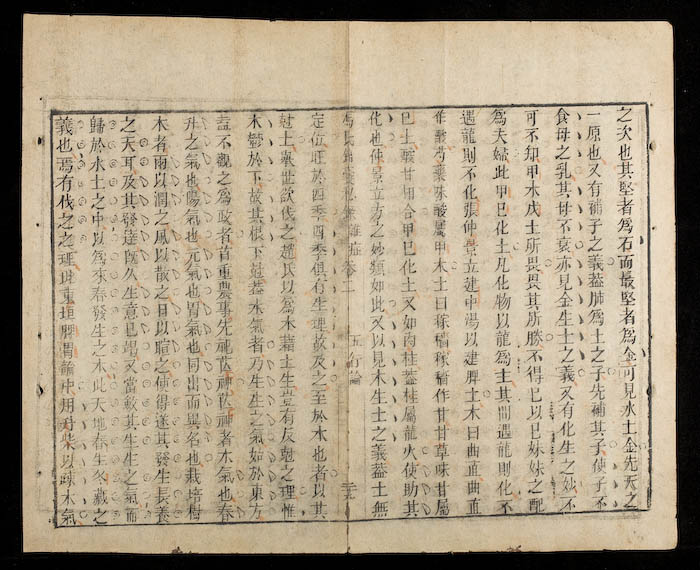 之次也其堅者為石而最堅者為金可見水土金先天之
一原也又有補子之義葢肺為土之子先補其子使子不
食母之乳其母不衰亦見金生土之義又有化生之妙不
可不知甲木戊土所畏畏其所勝不得巳以巳妹妹之配
為夫婦此甲巳化土凡化物以龍為主其間遇龍則化不
遇龍則不化張仲景立建中湯以建脾土木曰曲直曲直
作酸芍藥味酸屬甲木土曰稼穡稼穡作甘甘草味甘屬
巳土酸甘相合甲巳化土又如肉桂葢桂屬龍火使助其
化也仲景立方之妙類如此又以見木生土之義葢土無
馮氏錦囊秘錄雜症 卷二 五行論
定位旺於四季四季俱有生理故及之至於木也者以其
尅土舉世欲伐之趙氏以為木藉土生豈有反尅之理惟
木鬱於下故其根下尅葢木氣者乃生生之氣始於東方
盍不觀之為政者首重農事先祀芒神芒神者木氣也春
升之氣也陽氣也元氣也胃氣也同出而異名也栽培樹
木者雨以潤之風以散之日以暄之使得遂其發生長養
之天耳及其發達既久生意已竭又當斂其生生之氣而
歸於水土之中以為來春發生之本此天地春生冬藏之
義也焉有伐之之理此東垣脾胃論中用升柴以疎木氣